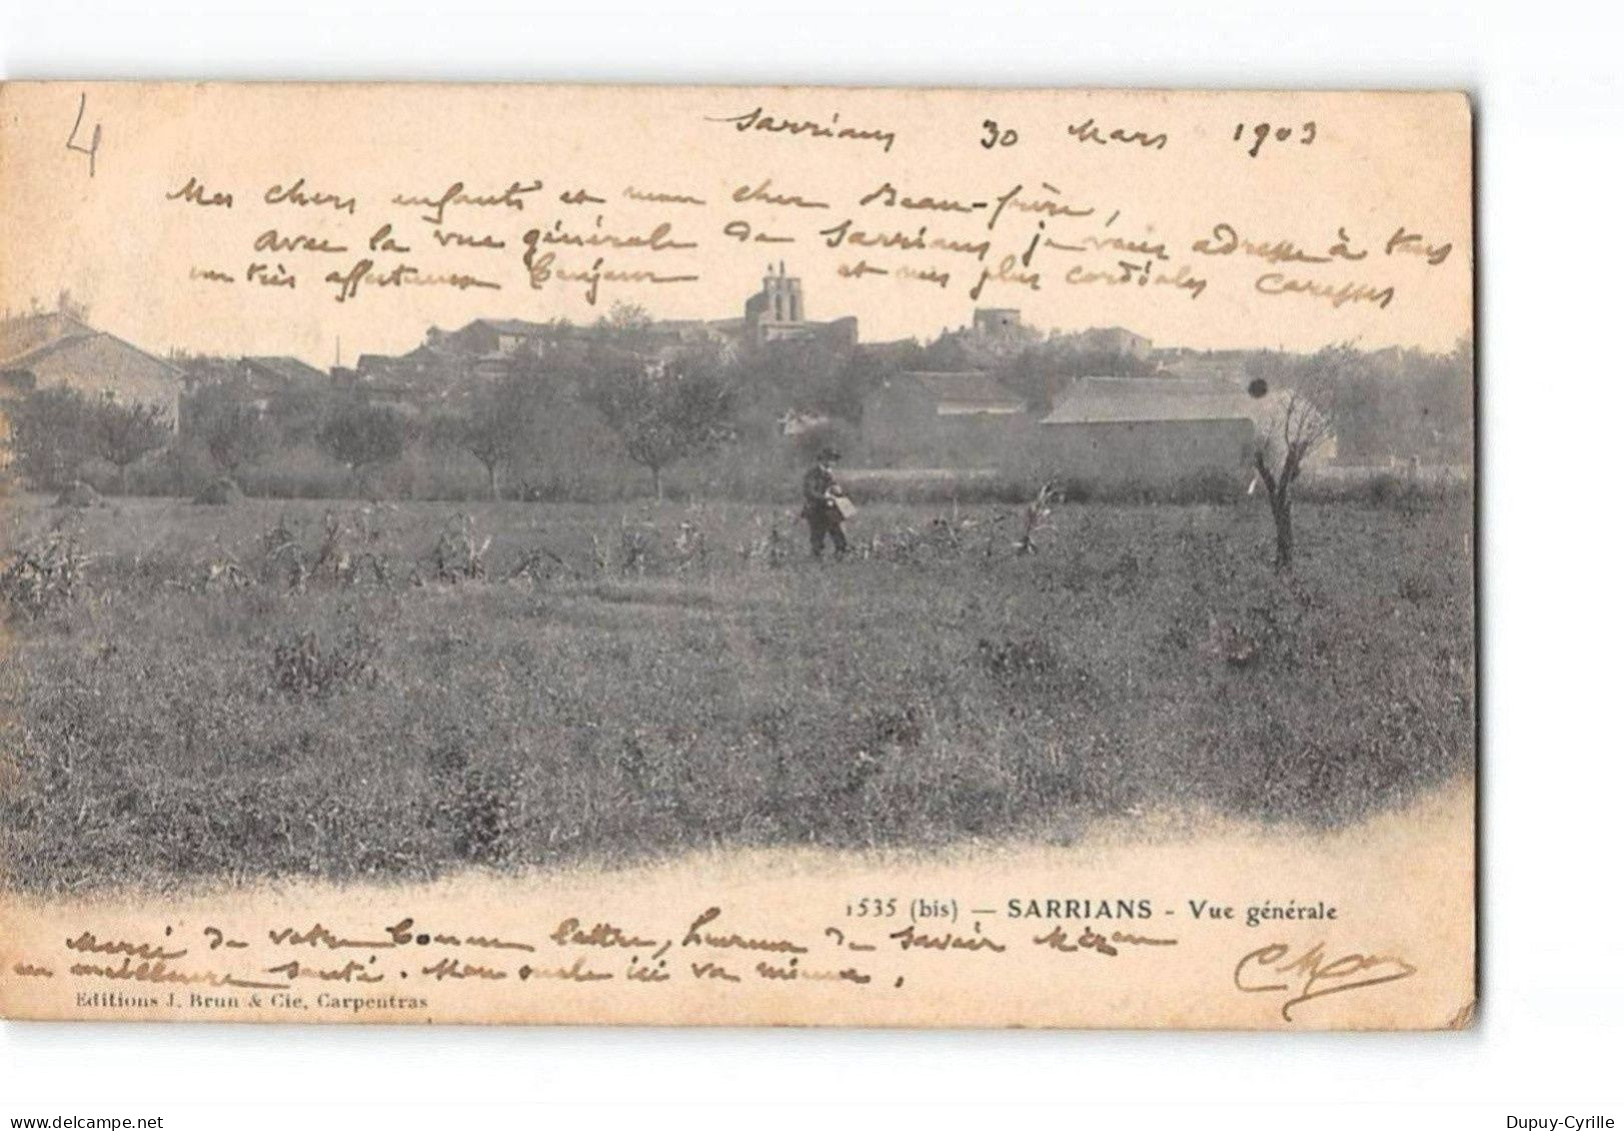 4
Sarrians 30 Mars 1903
Mes chers enfants et mon cher Beau-frère,
avec la vue générale de Sarrians je vais adresse à tous
un très affectueux bonjour et mes plus cordiales caresses
1535 (bis) — SARRIANS - Vue générale
Merci de votre bonne lettre, heureux de savoir
en meilleure santé. Mon oncle ici va mieux,
Editions J. Brun & Cie, Carpentras
www.delcampe.net
Dupuy-Cyrille